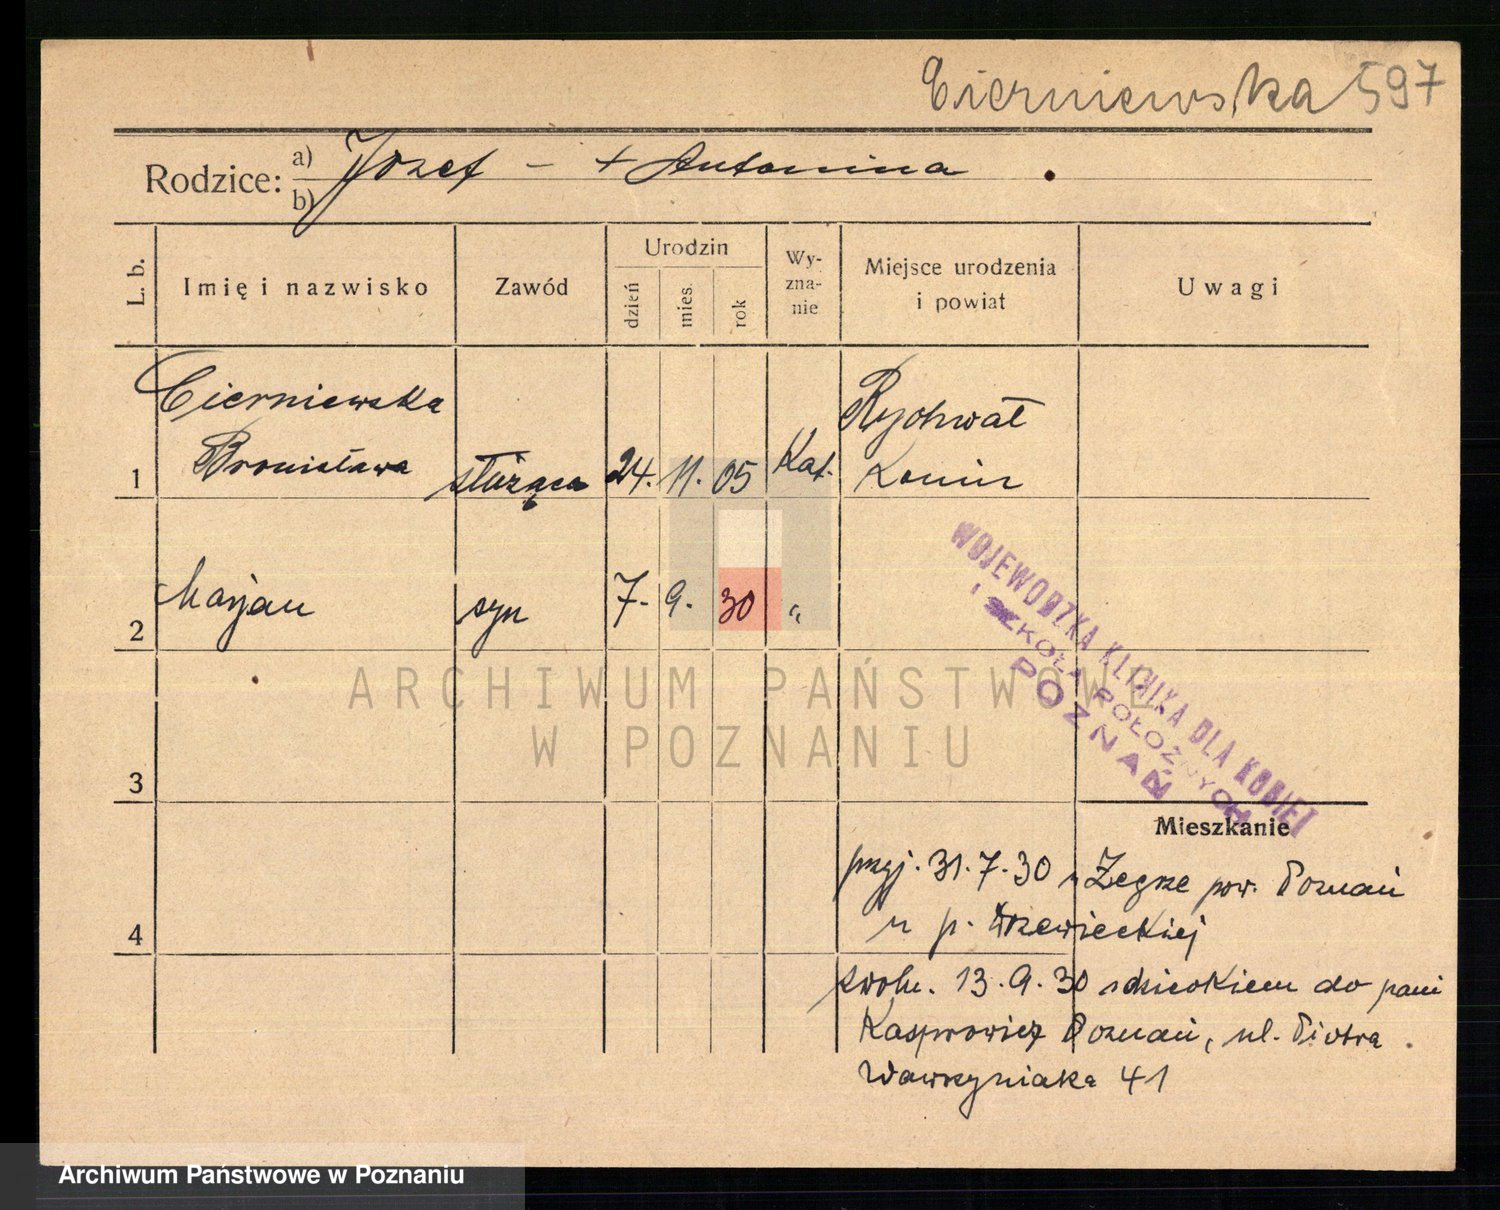 Cierniewska 597
Rodzice: a) Józef – + Antonina
b)
L. b.
Imię i nazwisko
Zawód
Urodzin
dzień
mies.
rok
Wy-
zna-
nie
Miejsce urodzenia
i powiat
Uwagi
Cierniewska
Bronisława
1
służąca
24. 11. 05
Kat.
Rychwał
Konin
2
Marjan
syn
7. 9. 30
"
WOJEWÓDZKA KLINIKA DLA KOBIET
i SZKOŁA POŁOŻNYCH
POZNAŃ
ARCHIWUM PAŃSTWOWE
W POZNANIU
3
Mieszkanie
przyj. 31.7.30 z Żegrze pow. Poznań
4
u p. Drzewieckiej
zwoln. 13.9.30 z dzieckiem do pani
Kasprowicz Poznań, ul. Piotra
Wawrzyniaka 41
Archiwum Państwowe w Poznaniu